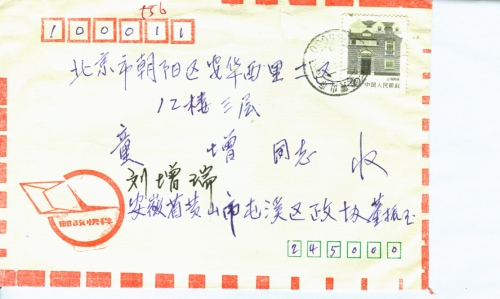 156
100011
北京市朝阳区安华西里二区
12楼三层
童 增 同志 收
刘增瑞
安徽省黄山市屯溪区政协 董振玉
邮政快件
245000
中国人民邮政